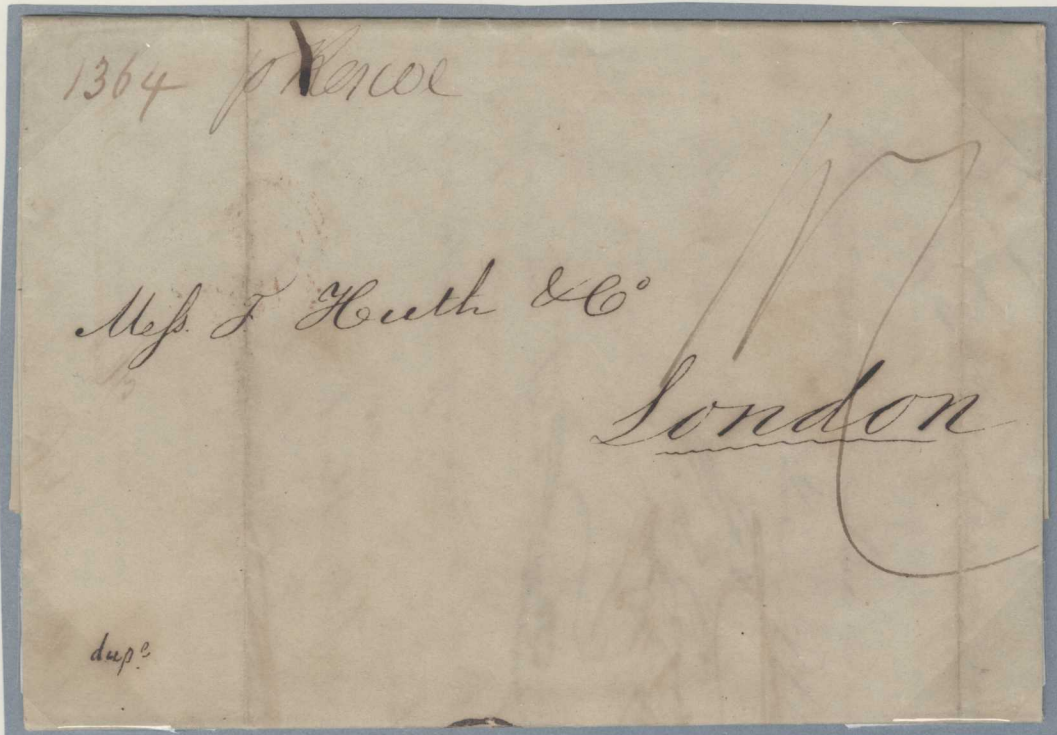 1364 p Roscoe
Mess. F Huth & Cº
London
dupᵉ